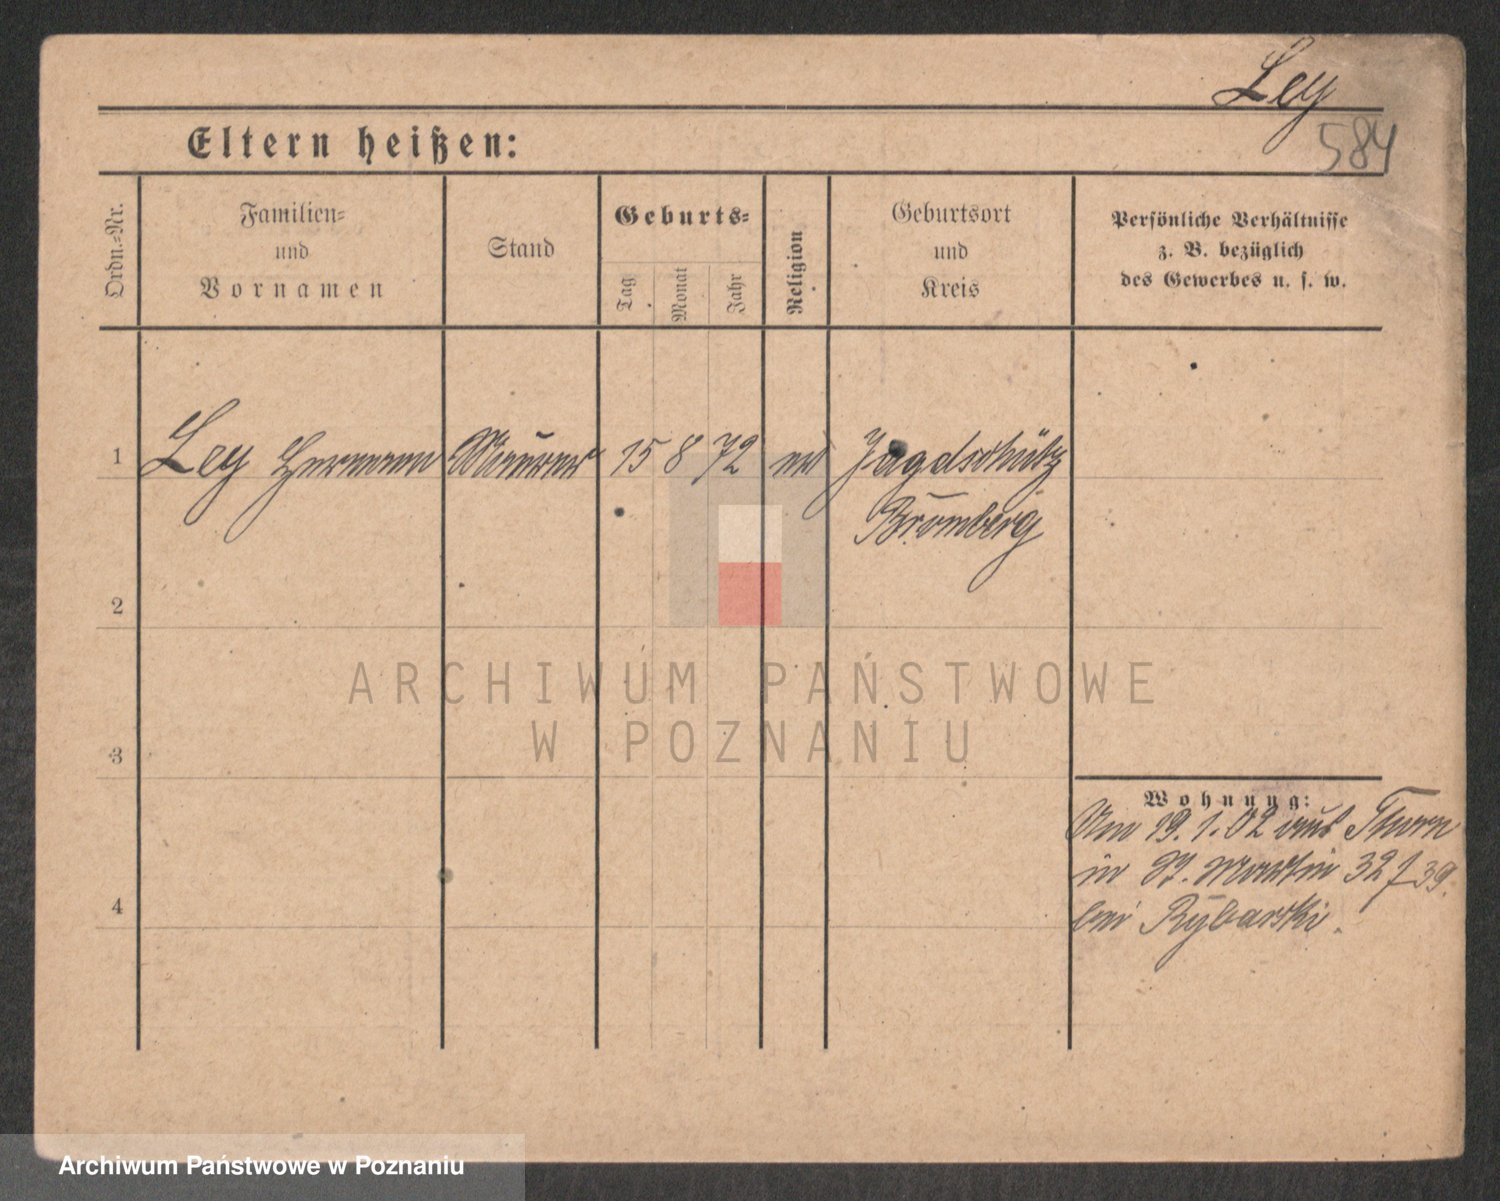 Ley
584
Eltern heißen:
Ordn.-Nr.
Familien-
und
Vornamen
Stand
Geburts-
Tag
Monat
Jahr
Religion
Geburtsort
und
Kreis
Persönliche Verhältnisse
z. B. bezüglich
des Gewerbes u. s. w.
1 Ley Hermann Maurer 15 8 72 Jagdschütz
Bromberg
2
3
4
Wohnung:
Am 19.1.02 aus Thorn
in St. Martin 32
bei Rybarski.
ARCHIWUM PAŃSTWOWE
W POZNANIU
Archiwum Państwowe w Poznaniu